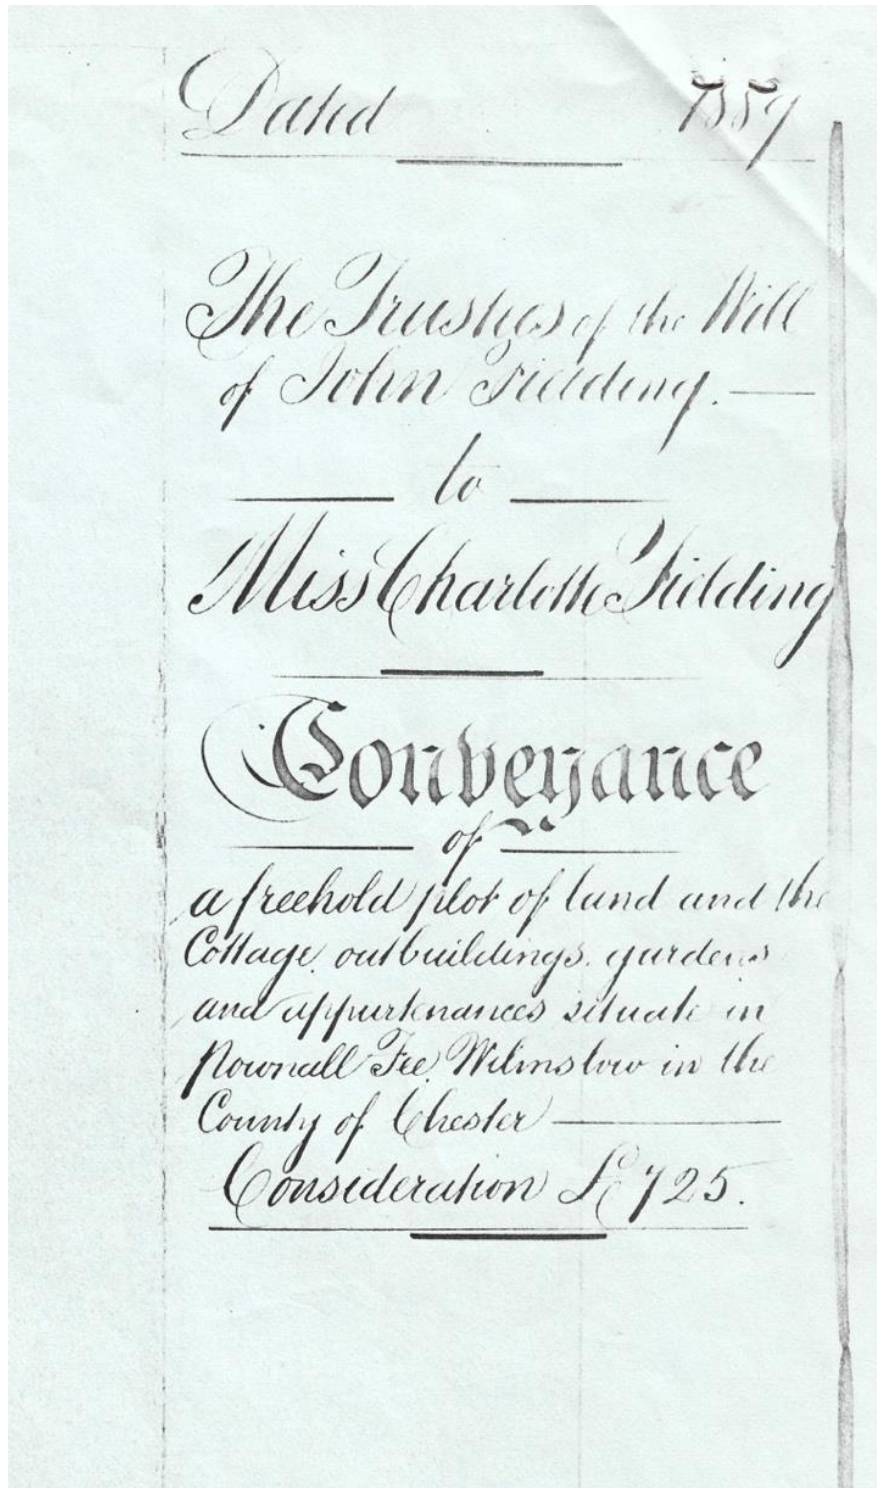 Dated 1889
The Trustees of the Will
of John Fielding.
to
Miss Charlotte Fielding
Conveyance
of
a freehold plot of land and the
Cottage outbuildings gardens
and appurtenances situate in
Pownall Fee Wilmslow in the
County of Chester
Consideration £725.